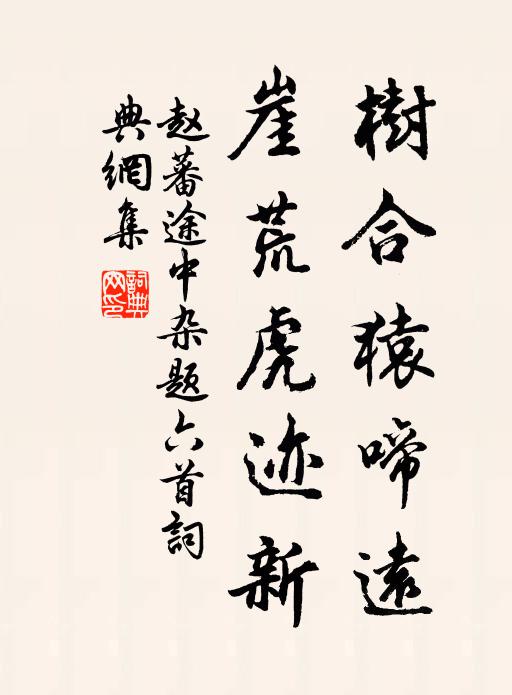 樹合猿啼遠
崖荒虎迹新
赵蕃途中杂题六首詞
典網集
詞典
网印